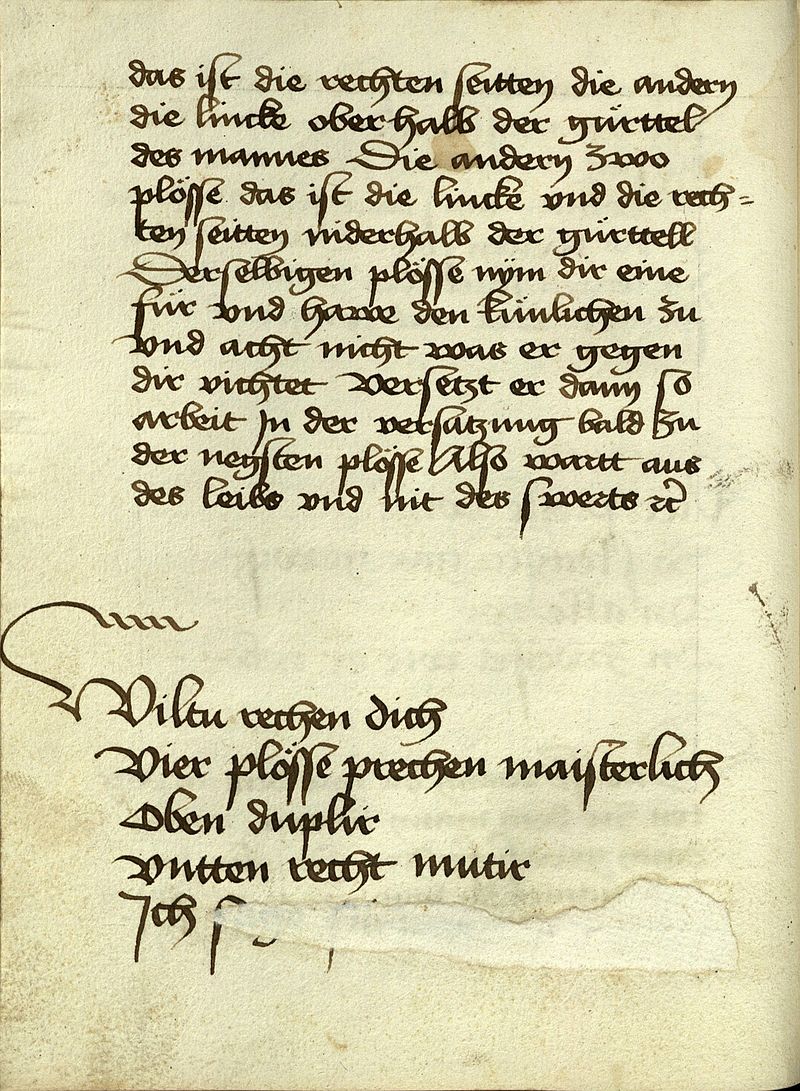 das ist die rechten seitten die andern
die lincke oberhalb der gürttel
des mannes Die andern zwo
plösse das ist die lincke vnd die rech=
ten seitten niderhalb der gürttell
Derselbigen plösse nÿm dir eine
für vnd hawe den künlichen zu
vnd acht nicht was er gegen
dir vichtet Versetzt er dann so
arbeit Jn der versatzung bald zu
der negsten plösse Also wartt aus
des leibs vnd nit des swerts ꝛc̃
Wiltu rechen dich
Vier plösse prechen maisterlich
Oben duplir
vntten recht mutir
Jch